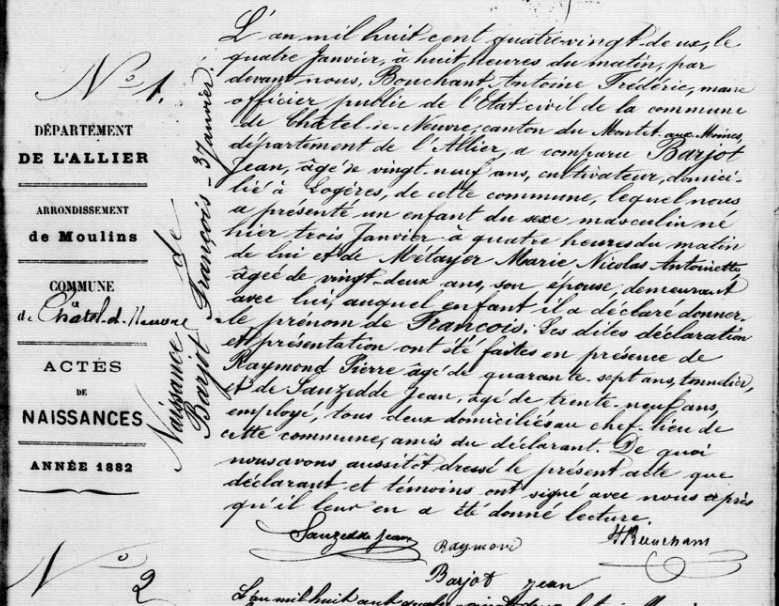 N° 1.
DÉPARTEMENT
DE L'ALLIER
ARRONDISSEMENT
de Moulins
COMMUNE
de Châtel-d-Neuvre
ACTES
DE
NAISSANCES
ANNÉE 1882
Naissance de
Barjot François - 3 Janvier.
L'an mil huit cent quatre-vingt-deux, le
quatre Janvier, à huit heures du matin, par
devant nous, Bouchant Antoine Frédéric, maire
officier public de l'Etat-civil de la commune
de Châtel-de-Neuvre, canton du Montet-aux-Moines,
département de l'Allier, a comparu Barjot
Jean, âgé de vingt-neuf ans, cultivateur, domici-
lié à Logères, de cette commune, lequel nous
a présenté un enfant du sexe masculin né
hier trois Janvier à quatre heures du matin
de lui et de Métayer Marie Nicolas Antoinette
âgée de vingt-deux ans, son épouse, demeurant
avec lui, auquel enfant il a déclaré donner
le prénom de François. Les dites déclaration
et présentation ont été faites en présence de
Raymond Pierre âgé de quarante-sept ans, tonnelier,
et de Sauzedde Jean, âgé de trente-neuf ans,
employé, tous deux domiciliés au chef-lieu de
cette commune, amis du déclarant. De quoi
nous avons aussitôt dressé le présent acte que
déclarant et témoins ont signé avec nous après
qu'il leur en a été donné lecture.
Sauzedde Jean Raymond
Barjot Jean
N° 2
L'an mil huit cent